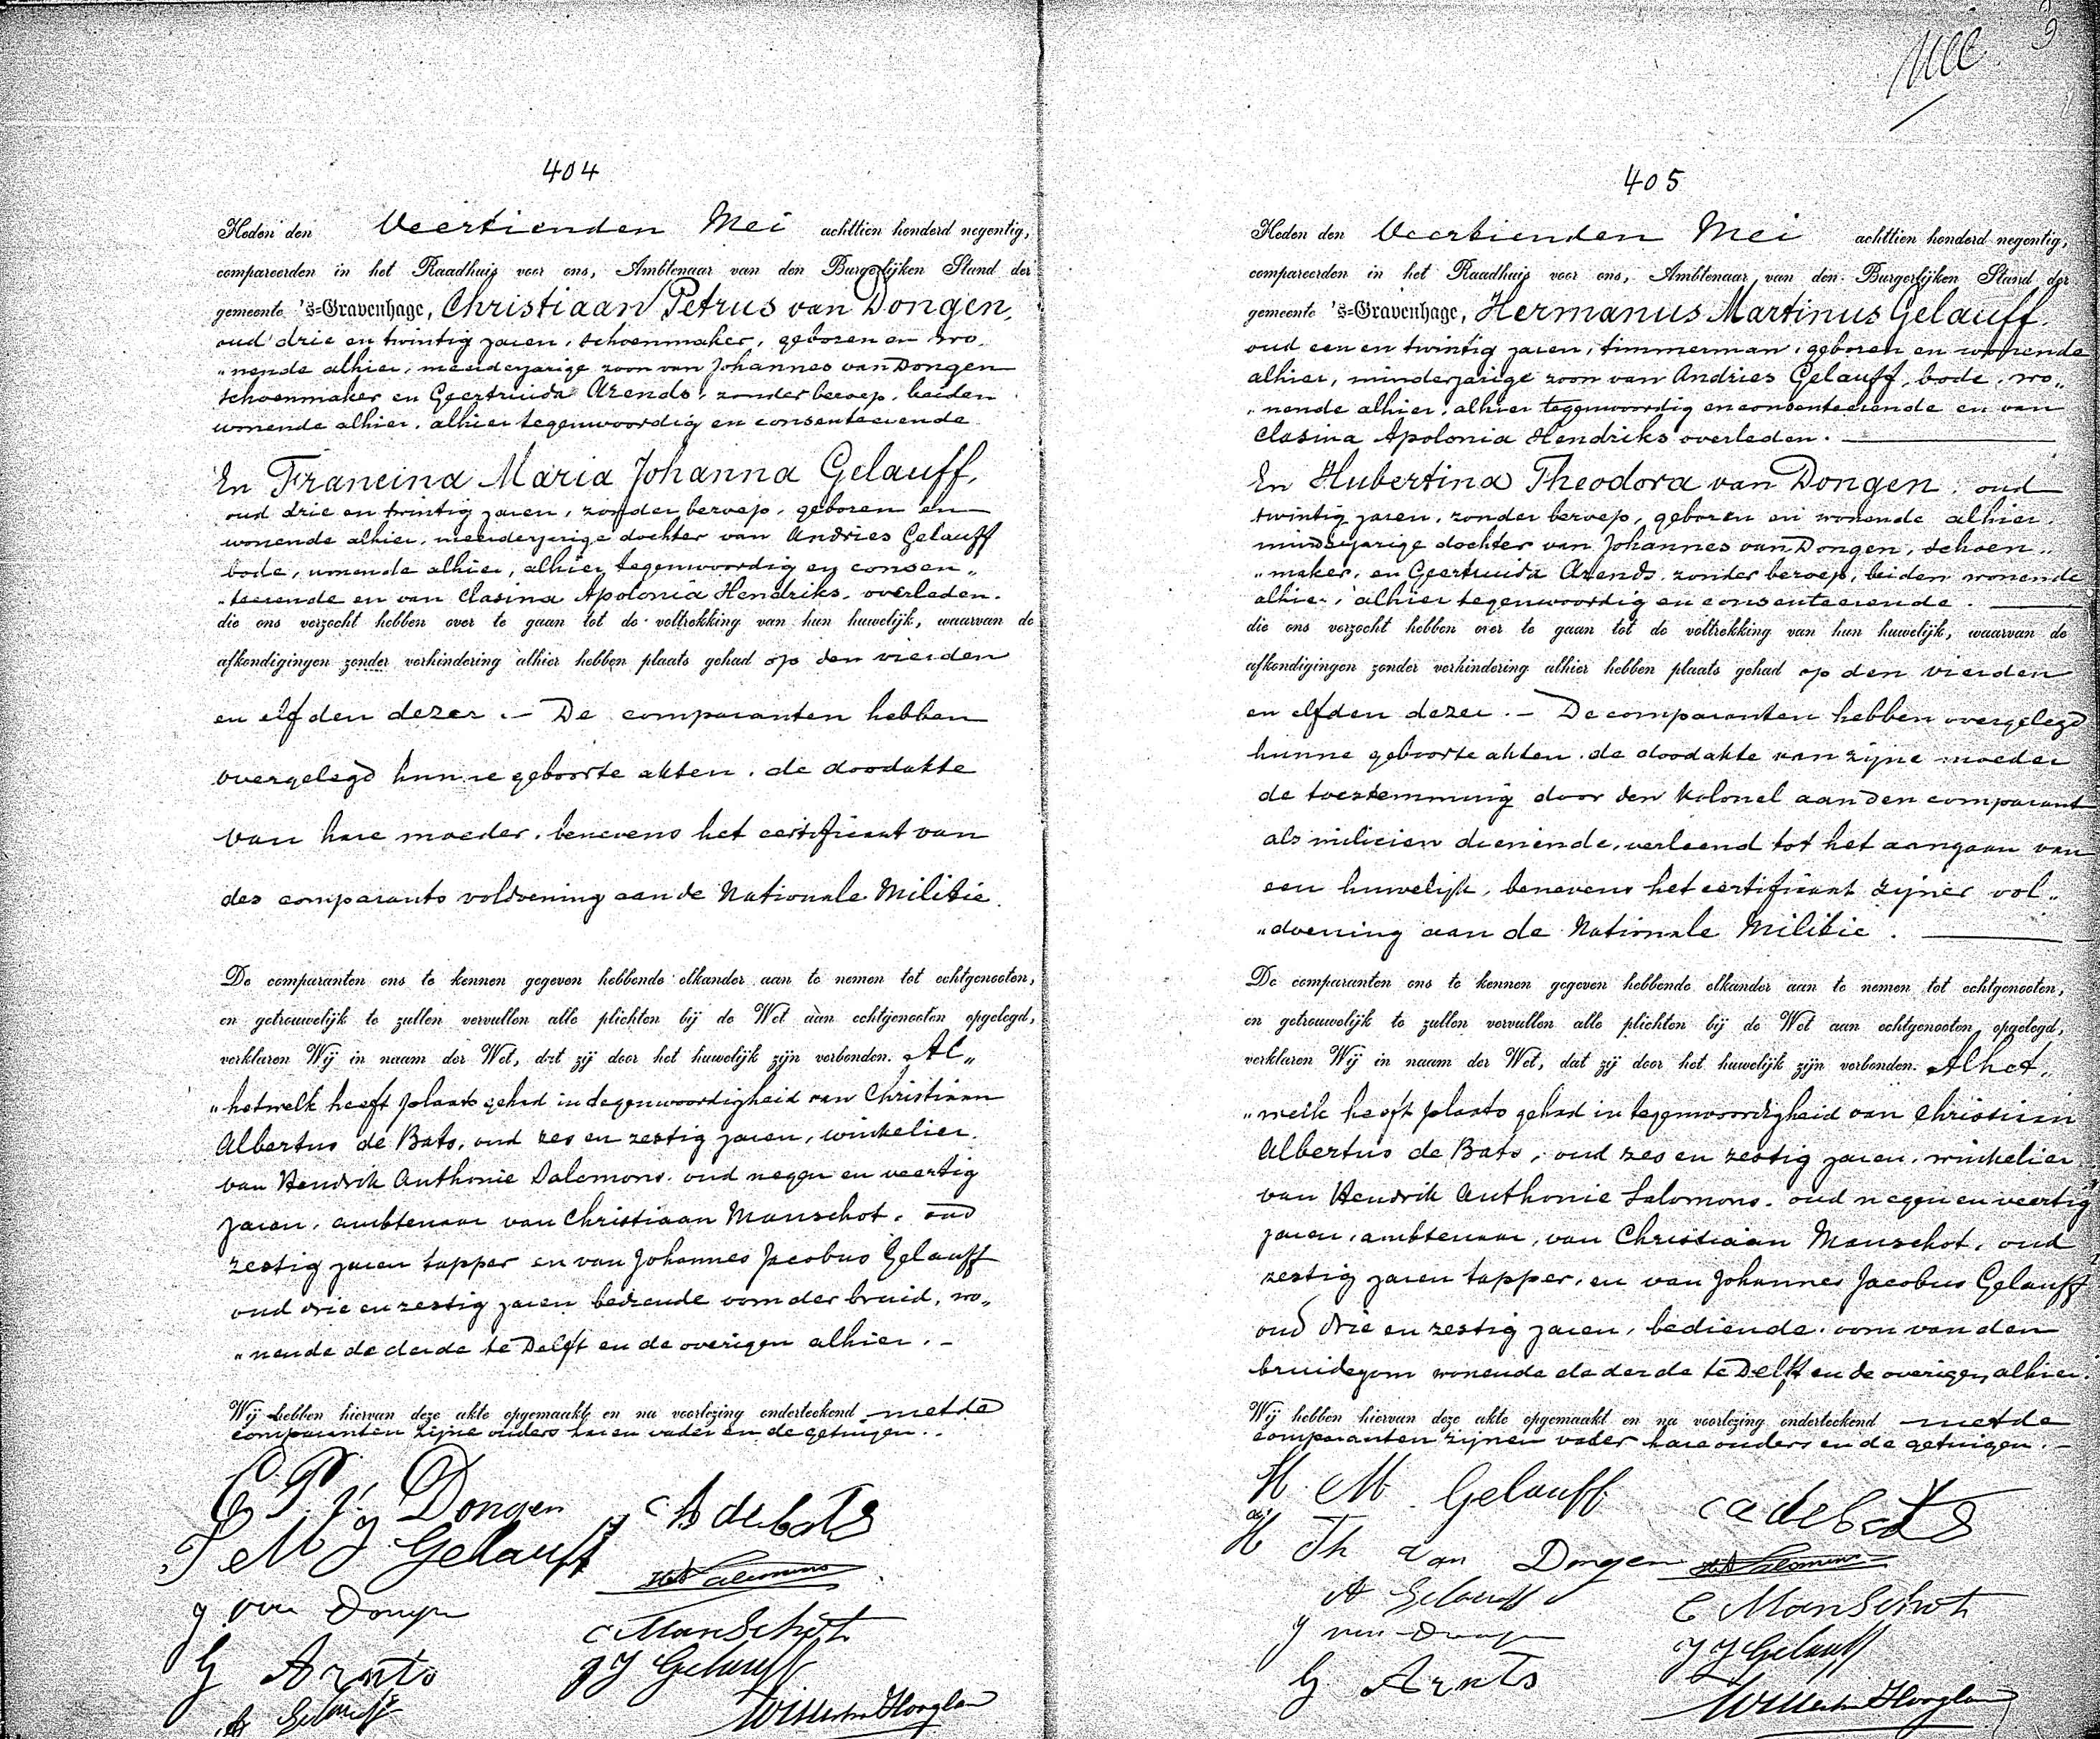 404
Heden den Veertienden Mei achttien honderd negentig,
compareerden in het Raadhuis voor ons, Ambtenaar van den Burgerlijken Stand der
gemeente 's=Gravenhage, Christiaan Petrus van Dongen,
oud drie en twintig jaren, schoenmaker, geboren en wo„
„nende alhier, meerderjarige zoon van Johannes van Dongen
schoenmaker en Geertruida Arends, zonder beroep, beiden
wonende alhier, alhier tegenwoordig en consenteerende
En Francina Maria Johanna Gelauff,
oud drie en twintig jaren, zonder beroep, geboren en
wonende alhier, meerderjarige dochter van Andries Gelauff
bode, wonende alhier, alhier tegenwoordig en consen„
„teerende en van Clasina Apolonia Hendriks, overleden.
die ons verzocht hebben over te gaan tot de voltrekking van hun huwelijk, waarvan de
afkondigingen zonder verhindering alhier hebben plaats gehad op den vierden
en elfden dezer. — De comparanten hebben
overgelegd hunne geboorte akten, de doodakte
van hare moeder, benevens het certificaat van
des comparants voldoening aan de Nationale Militie.
De comparanten ons te kennen gegeven hebbende elkander aan te nemen tot echtgenooten,
en getrouwelijk te zullen vervullen alle plichten bij de Wet aan echtgenooten opgelegd,
verklaren Wij in naam der Wet, dat zij door het huwelijk zijn verbonden. Al„
„hetwelk heeft plaats gehad in tegenwoordigheid van Christiaan
Albertus de Bats, oud zes en zestig jaren, winkelier,
van Hendrik Anthonie Salomons, oud negen en veertig
jaren, ambtenaar van Christiaan Manschot, oud
zestig jaren tapper en van Johannes Jacobus Gelauff
oud drie en zestig jaren bediende oom der bruid, wo„
„nende de derde te Delft en de overigen alhier. —
Wij hebben hiervan deze akte opgemaakt en na voorlezing onderteekend met de
comparanten zijne ouders haren vader en de getuigen. —
C. P. v. Dongen
F M J Gelauff
J van Dongen
G Arnts
A Gelauff
C A de Bats
HA Salomons
C ManSchot
J J Gelauff
405
Heden den Veertienden Mei achttien honderd negentig,
compareerden in het Raadhuis voor ons, Ambtenaar van den Burgerlijken Stand der
gemeente 's=Gravenhage, Hermanus Martinus Gelauff,
oud een en twintig jaren, timmerman, geboren en wonende
alhier, minderjarige zoon van Andries Gelauff, bode, wo„
„nende alhier, alhier tegenwoordig en consenteerende en van
Clasina Apolonia Hendriks overleden.
En Hubertina Theodora van Dongen, oud
twintig jaren, zonder beroep, geboren en wonende alhier,
minderjarige dochter van Johannes van Dongen, schoen„
„maker, en Geertruida Arends, zonder beroep, beiden wonende
alhier, alhier tegenwoordig en consenteerende.
die ons verzocht hebben over te gaan tot de voltrekking van hun huwelijk, waarvan de
afkondigingen zonder verhindering alhier hebben plaats gehad op den vierden
en elfden dezer. — De comparanten hebben overgelegd
hunne geboorte akten, de doodakte van zijne moeder
de toestemming door den Kolonel aan den comparant
als milicien dienende, verleend tot het aangaan van
een huwelijk, benevens het certificaat zijner vol„
„doening aan de Nationale Militie.
De comparanten ons te kennen gegeven hebbende elkander aan te nemen tot echtgenooten,
en getrouwelijk te zullen vervullen alle plichten bij de Wet aan echtgenooten opgelegd,
verklaren Wij in naam der Wet, dat zij door het huwelijk zijn verbonden. Alhet„
„welk heeft plaats gehad in tegenwoordigheid van Christiaan
Albertus de Bats, oud zes en zestig jaren, winkelier
van Hendrik Anthonie Salomons, oud negen en veertig
jaren, ambtenaar, van Christiaan Manschot, oud
zestig jaren tapper, en van Johannes Jacobus Gelauff
oud drie en zestig jaren, bediende, oom van den
bruidegom wonende de derde te Delft en de overigen alhier.
Wij hebben hiervan deze akte opgemaakt en na voorlezing onderteekend met de
comparanten zijnen vader hare ouders en de getuigen. —
H. M. Gelauff
H Th van Dongen
A Gelauff
J van Dongen
G Arnts
C A de Bats
HA Salomons
C ManSchot
J J Gelauff